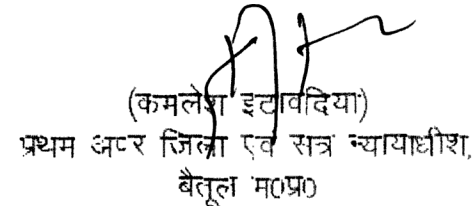 (कमलेश इटावदिया)
प्रथम अपर जिला एवं सत्र न्यायाधीश,
बैतूल म0प्र0